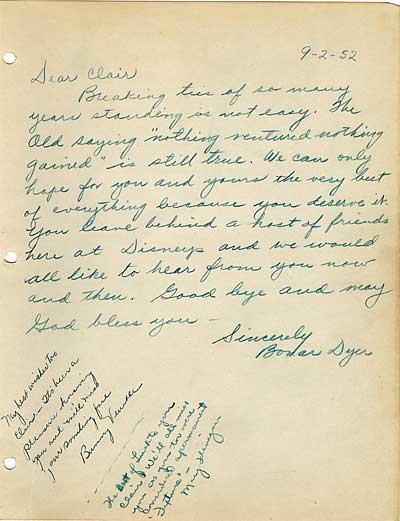 9-2-52
Dear Clair
Breaking ties of so many
years standing is not easy. The
Old saying "nothing ventured nothing
gained" is still true. We can only
hope for you and yours the very best
of everything because you deserve it.
You leave behind a host of friends
here at Disneys and we would
all like to hear from you now
and then. Good bye and may
God bless you -
Sincerely
Bonar Dyer
My best wishes too
Clair - It's been a
pleasure knowing
you and will miss
your smiling face
Bunny
The best of luck to you
Clair! We'll all miss
you as you
considered a permanent
"fixture" -
Mary